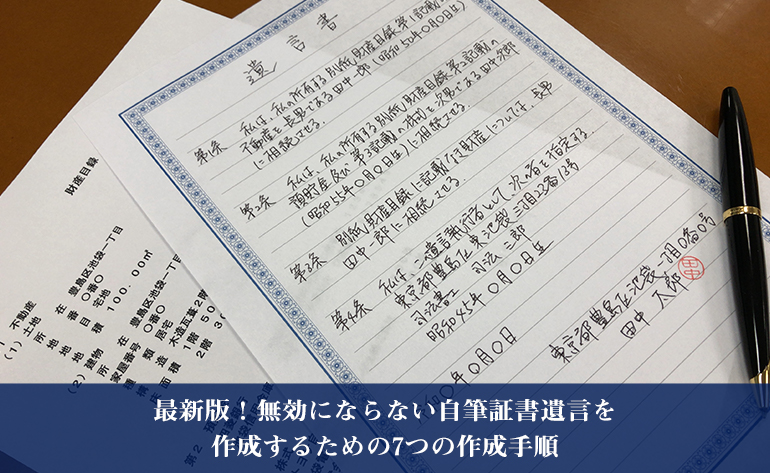 財産目録
不動産
(1) 土地
所 在 豊島区池袋一丁目
地 番 〇番〇
地 目 宅地
地 積 100.00㎡
(2) 建物
所 在 豊島区池袋一丁目
家屋番号 〇番〇
種 類 居宅
構 造 木造瓦葺2階
床面積 1階 50
2階 3
第2
遺言書
第1条 私は、私の所有する別紙財産目録第1記載の
不動産を長男である田中一郎(昭和50年0月0日生)
に相続させる。
第2条 私は、私の所有する別紙財産目録第2記載の
預貯金及び第3記載の株式を次男である田中次郎
(昭和55年0月0日生)に相続させる。
第3条 別紙財産目録に記載なき財産については、長男
田中一郎に相続させる。
第4条 私は、この遺言執行者として、次の者を指定する。
東京都豊島区東池袋三丁目23番13号
司法書士 司法 三郎
昭和45年0月0日生
年0月0日
東京都豊島区池袋一丁目0番0号
田中 太郎
田中
最新版！無効にならない自筆証書遺言を
作成するための7つの作成手順